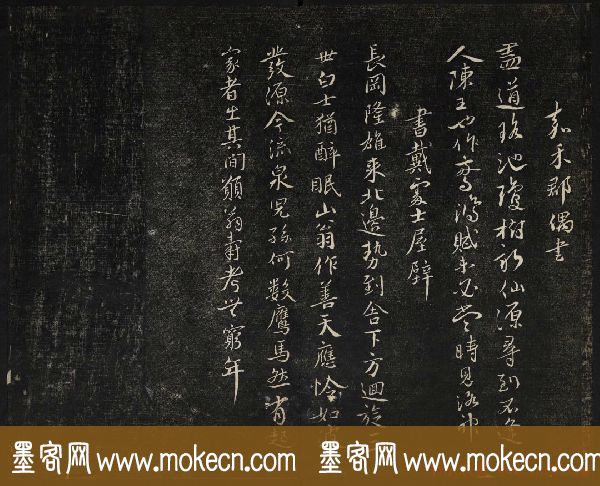 嘉禾郡偶書
盡道瑤池瓊樹新仙源尋到不逢
人陳王也作驚鴻賦未必當時見洛神
書戴處士屋壁
長岡隆雄來北邊勢到舍下方迴旋
世白士猶醉眠山翁作善天應憐如
發源今流泉兒孫何數鷹馬然有起
家者出其間願翁壽考無窮年
墨客网 www.mokecn.com 墨客网 www.mokecn.com